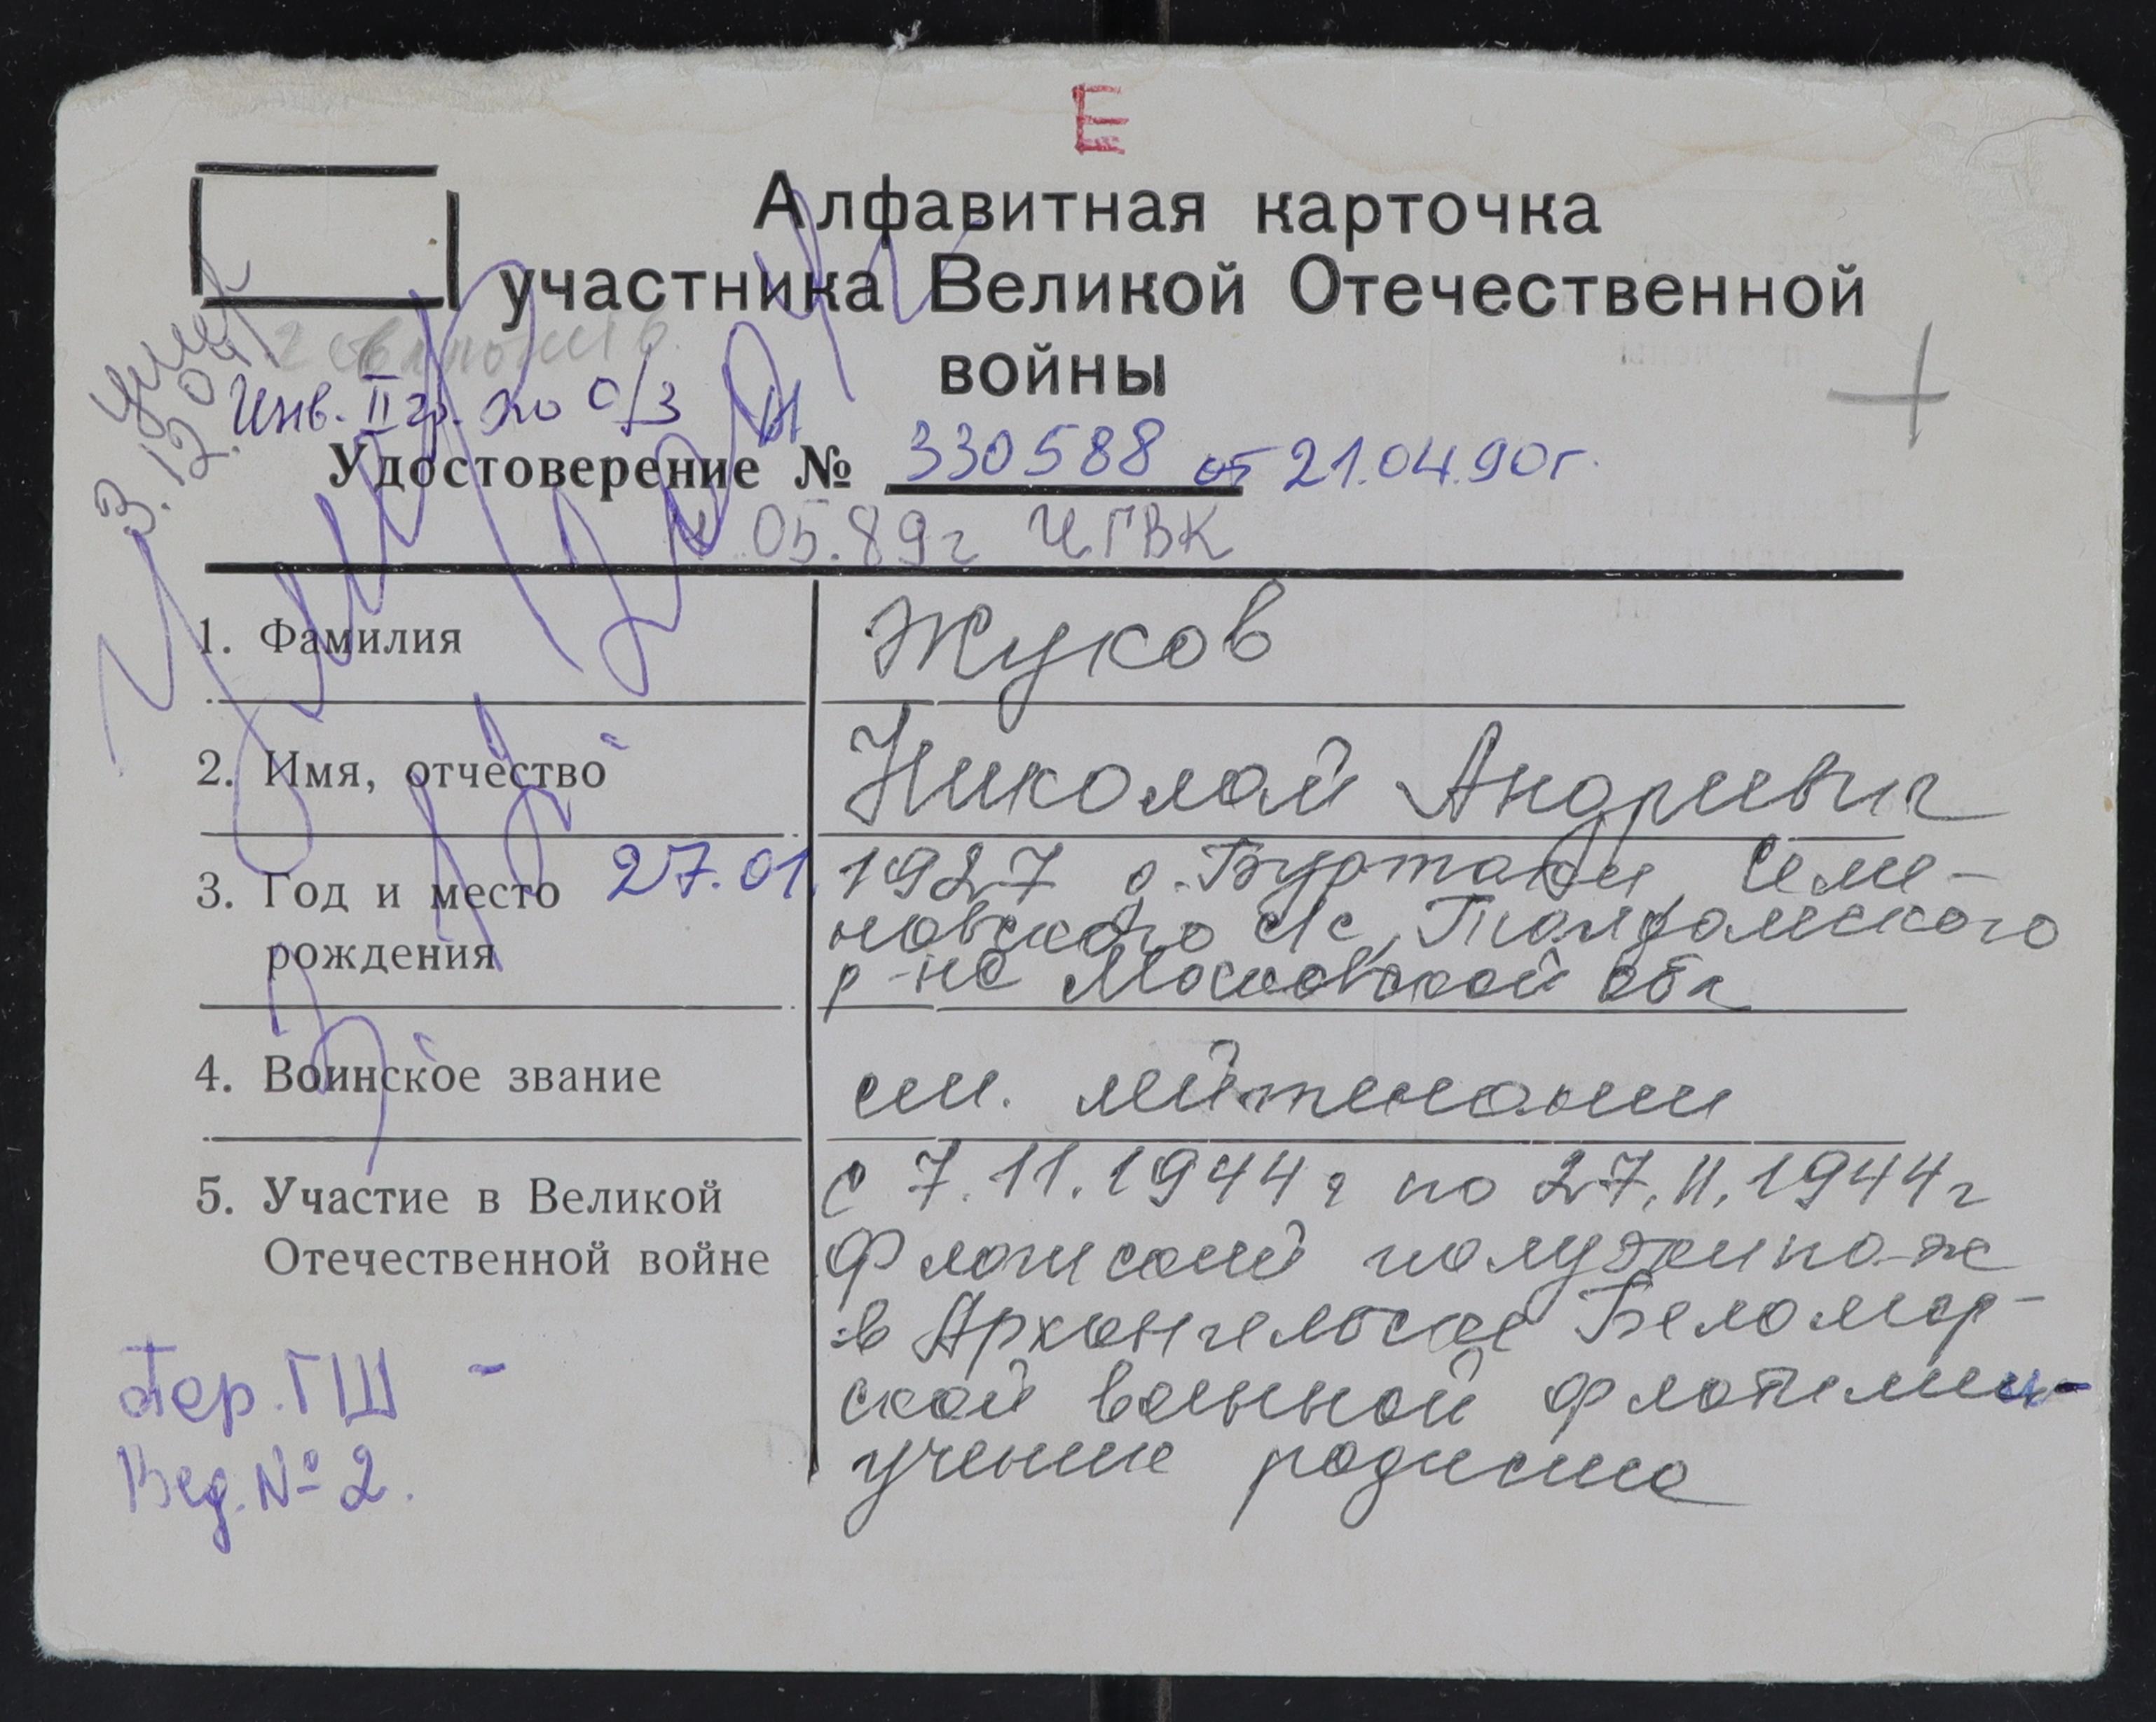 Е
Алфавитная карточка
участника Великой Отечественной
войны
умер
3.12.04
Инв. II гр. по о/з
Удостоверение № 330588 от 21.04.90г.
05.89г ЧГВК
1. Фамилия Жуков
2. Имя, отчество Николай Андреевич
3. Год и место 27.01. 1927 д. Буртаки, Семе-
новского с/с, Талдомского
рождения р-на Московской обл
4. Воинское звание ст. лейтенант
5. Участие в Великой с 7.11.1944г по 27.11.1944г
Отечественной войне Флотский полуэкипаж
в Архангельске Беломор-
ской военной флотилии-
ученик радиста
Пер. ГШ -
Вед. № 2.